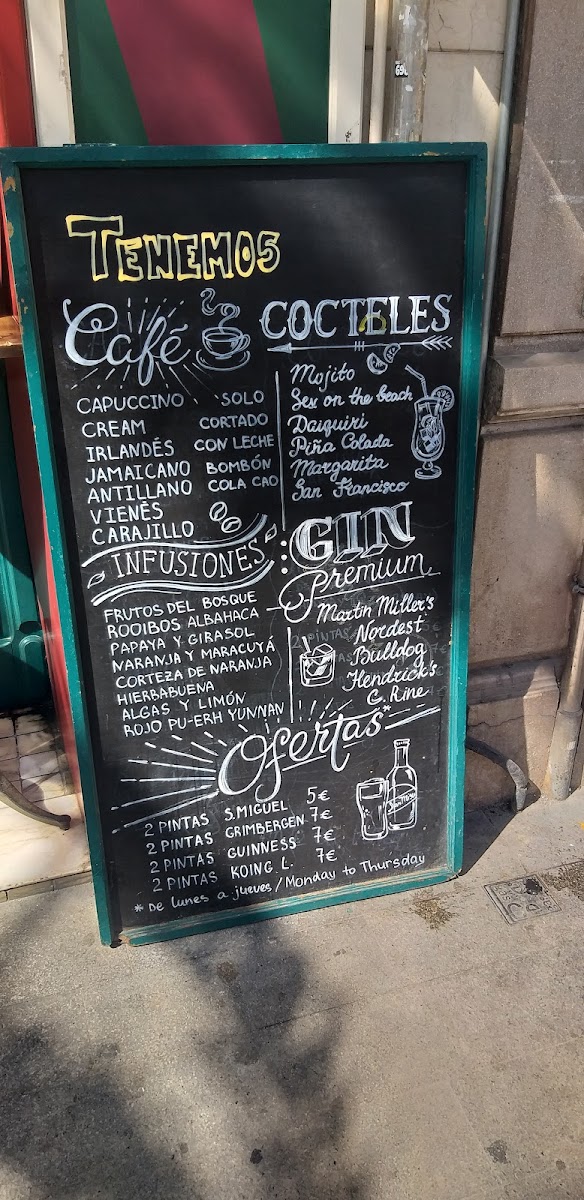 TENEMOS
Café
CAPUCCINO
CREAM
IRLANDÉS
JAMAICANO
ANTILLANO
VIENÉS
CARAJILLO
SOLO
CORTADO
CON LECHE
BOMBÓN
COLA CAO
INFUSIONES
FRUTOS DEL BOSQUE
ROOIBOS ALBAHACA
PAPAYA Y GIRASOL
NARANJA Y MARACUYÁ
CORTEZA DE NARANJA
HIERBABUENA
ALGAS Y LIMÓN
ROJO PU-ERH YUNNAN
COCTELES
Mojito
Sex on the Beach
Daiquiri
Piña Colada
Margarita
San Francisco
GIN
Premium
Martin Miller's
Nordest
Bulldog
Hendrick's
G. Rine
Ofertas*
2 PINTAS S.MIGUEL 5€
2 PINTAS GRIMBERGEN 7€
2 PINTAS GUINNESS 7€
2 PINTAS KOING L. 7€
* De lunes a jueves / Monday to Thursday